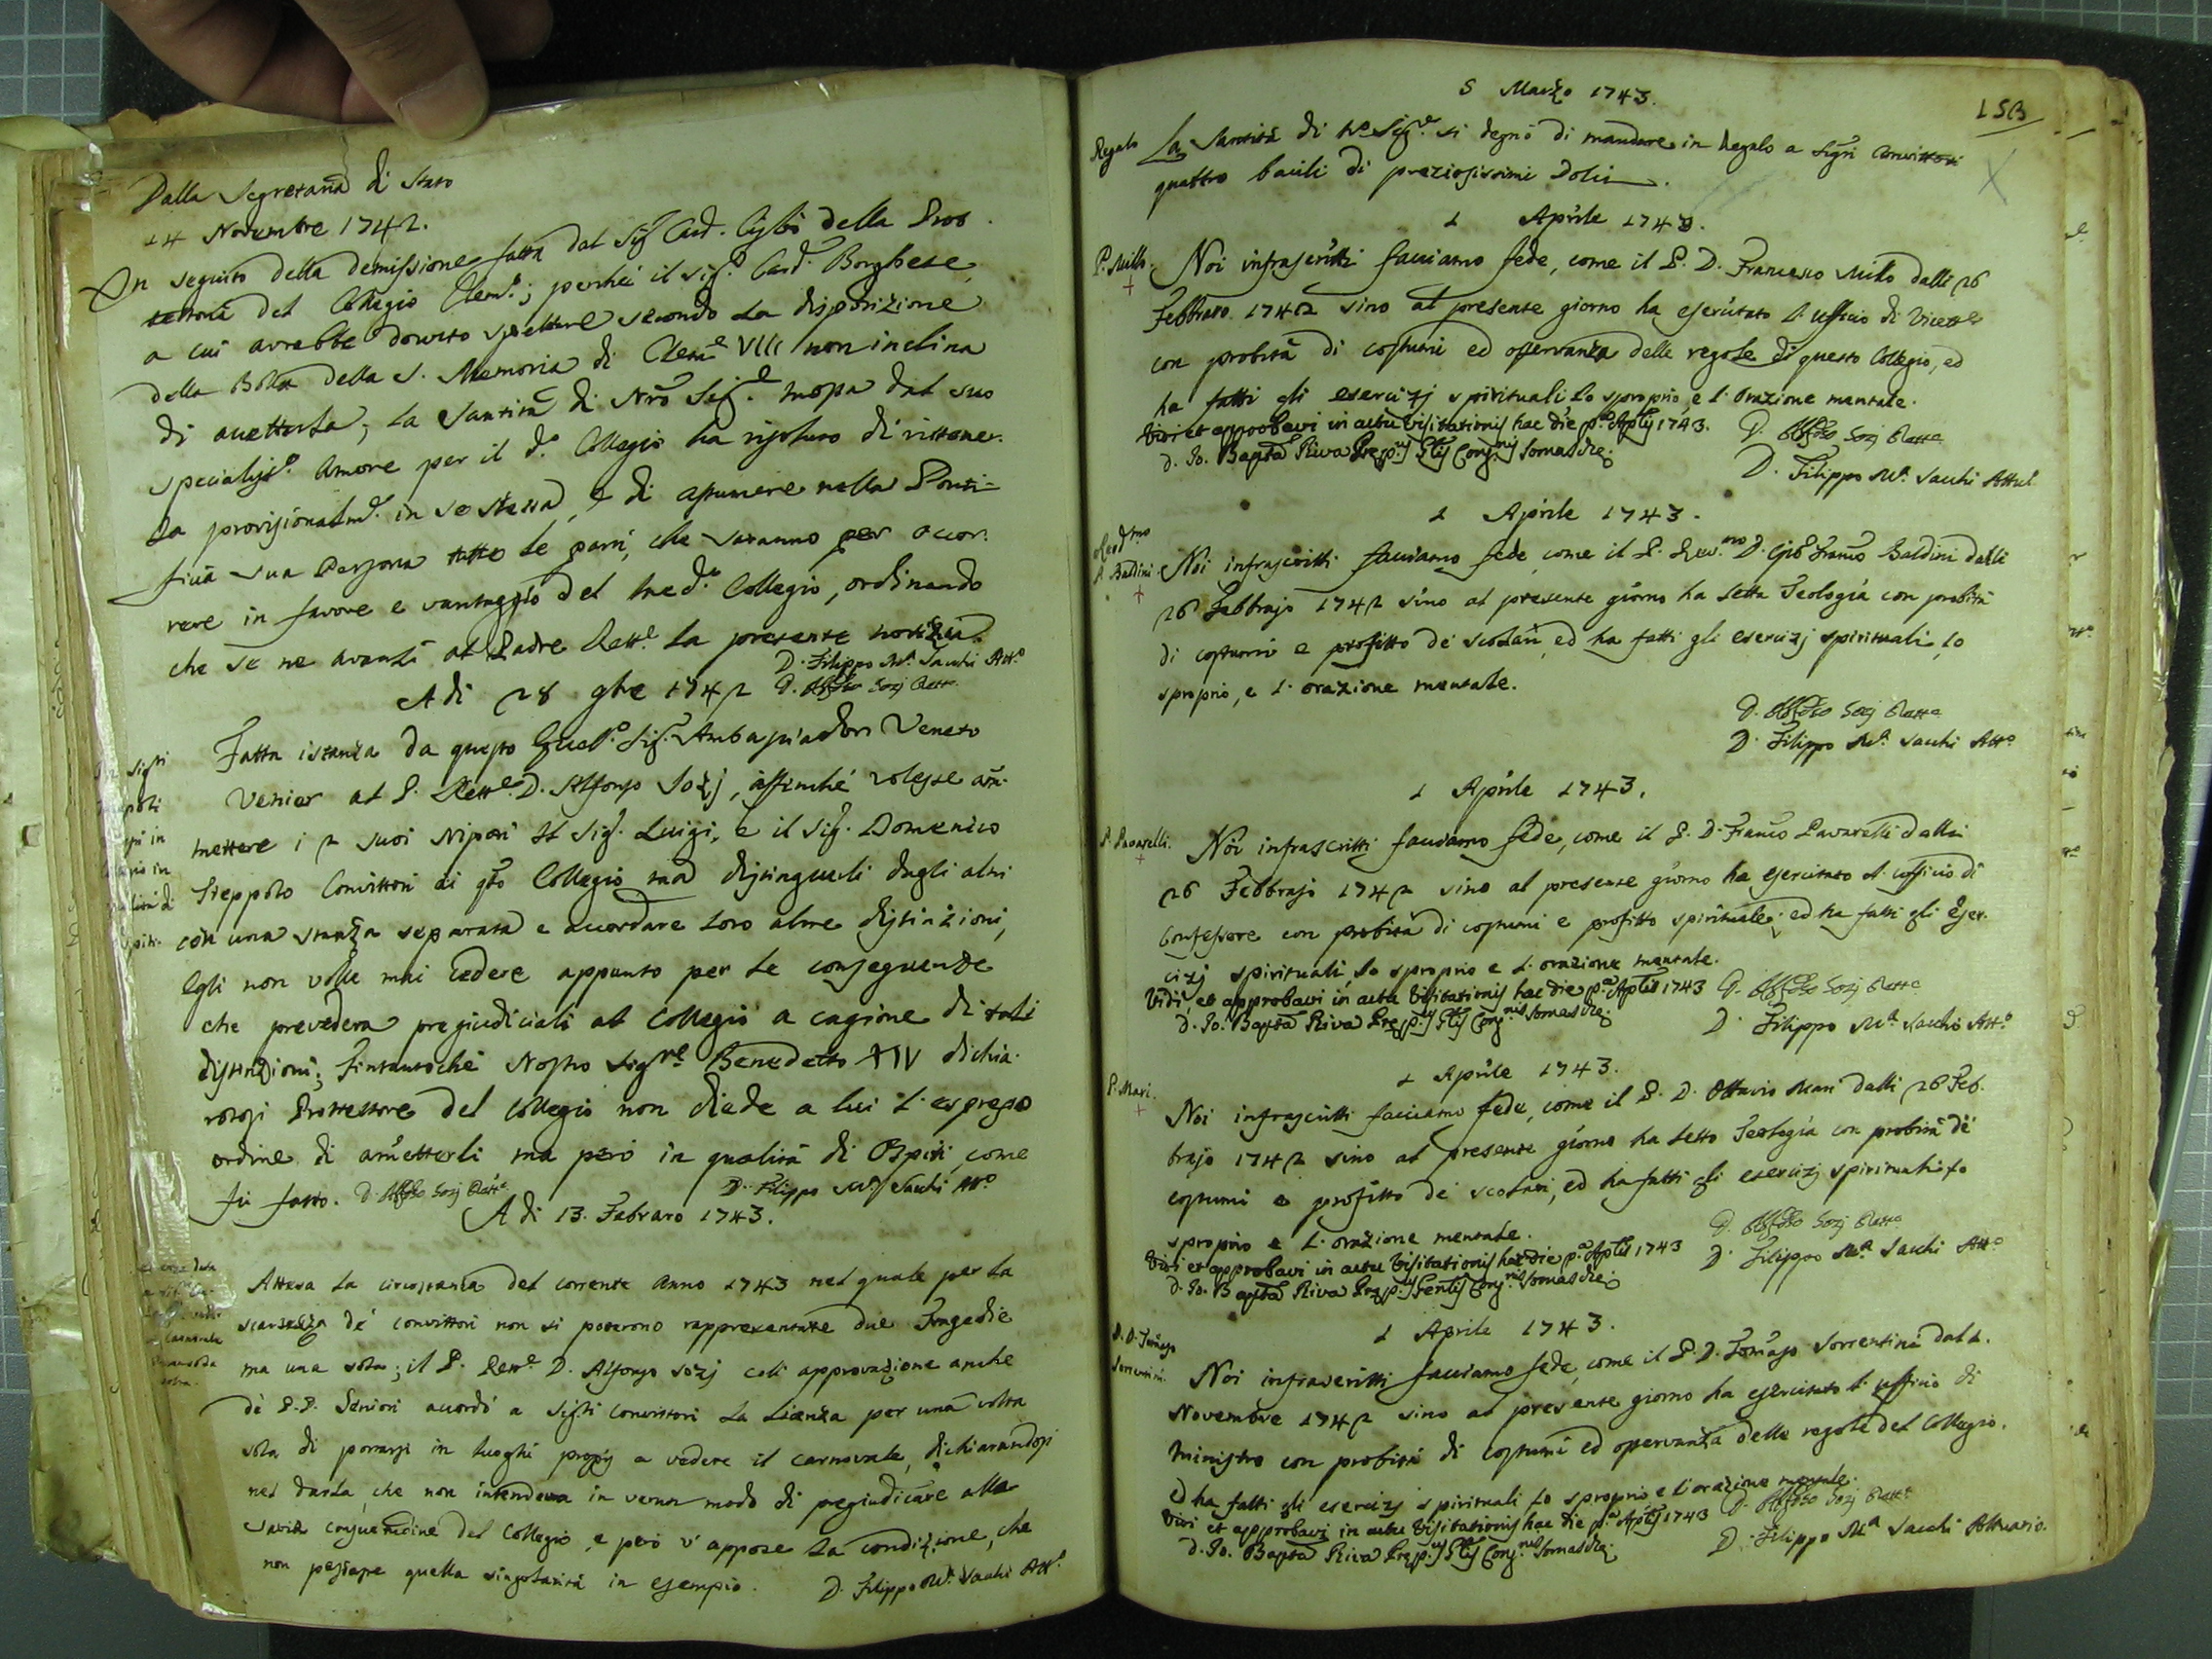 Dalla Segretaria di Stato
14 Novembre 1742.
In seguito della demissione fatta dal Sig.r Card. Cybò della Prot
tettoria del Collegio Clem.o; perché il Sig.r Card. Borghese,
a cui avrebbe dovuto spettare secondo la disposizione
della Bolla della S. Memoria di Clem.e VIII non inclina
di accettarla; la Santità di Nro Sig.e mossa dal suo
specialiss.o amore per il d.o Collegio ha risoluto di rittener-
la provisionalm.e in se stessa, e di assumere nella Ponti-
ficia sua Persona tutte le parti, che saranno per occor-
rere in favore e vantaggio del med.o Collegio, ordinando
che se ne avanzi al Padre Rett.e la presente notizia.
D. Filippo M.a Sacchi Att.o
A di 28 9bre 1742 D. Alfonso Sozj Rett.e
Fatta istanza da questo Eccell.o Sig.r Ambasciadore Veneto
Venier al P. Rett.e D. Alfonso Sozj, affinché volesse am-
mettere i 2 suoi Nipoti il Sig.r Luigi, e il Sig.r Domenico
Tieppolo Convittori di qsto Collegio ma distinguerli dagli altri
con una stanza separata e accordare loro altre distinzioni,
Egli non volle mai cedere appunto per le conseguenze
che prevedeva pregiudiciali al Collegio a cagione di tali
distinzioni; fintantoché Nostro Sig.re Benedetto XIV dichia-
ratosi Protettore del Collegio non diede a lui l'espresso
ordine di ammetterli, ma però in qualità di Ospiti, come
fu fatto. D. Alfonso Sozj Rett.e D. Filippo M.a Sacchi Att.o
A di 13. Febraro 1743.
Attesa la circostanza del corrente anno 1743 nel quale per la
scarsezza de' convittori non si poterono rappresentare due Tragedie
ma una sola; il P. Rett.e D. Alfonso Sozj coll'approvazione anche
de' P.P. Seniori accordò a Sig.ri Convittori la licenza per una volta
sola di portarsi in luoghi proprj a vedere il carnovale, dichiarandosi
nel darla, che non intendeva in verun modo di pregiudicare alla
savia consuetudine del Collegio, e però v'appose la condizione, che
non passasse quella singolarità in esempio. D. Filippo M.a Sacchi Att.o
153
5 Marzo 1743.
Regalo La Santità di No. Sig.e si degnò di mandare in Regalo a Sig.ri Convittori
quattro bacili di preziosissimi Dolci.
1 Aprile 1743.
P. Millo. Noi infrascritti facciamo fede, come il P. D. Francesco Millo dalli 26
Febbraro 1742 sino al presente giorno ha esercitato l'ufficio di Vicett.e
con probità di costumi ed osservanza delle regole di questo Collegio, ed
ha fatti gli esercizj spirituali, lo sproprio, e l'orazione mentale.
Vidi et approbavi in actu Visitationis hac die p.a Aplis 1743. D. Alfonso Sozj Rett.e
D. Jo. Bapta Riva Præp.us Glis Cong.nis Somaschæ. D. Filippo M.a Sacchi Attu.
1 Aprile 1743.
Rev.mo
P. Baldini. Noi infrascritti facciamo fede, come il P. Rev.mo D. Gio Franco Baldini dalli
26 Febbrajo 1742 sino al presente giorno ha letta Teologia con probità
di costumi e profitto de' scolari, ed ha fatti gli esercizj spirituali, lo
sproprio, e l'orazione mentale.
D. Alfonso Sozj Rett.e
D. Filippo M.a Sacchi Att.o
1 Aprile 1743.
P. Pavarelli. Noi infrascritti facciamo fede, come il P. D. Franco Pavarelli dalli
26 Febbrajo 1742 sino al presente giorno ha esercitato l'ufficio di
Confessore con probità di costumi e profitto spirituale, ed ha fatti gli Eser-
cizj spirituali, lo sproprio e l'orazione mentale.
Vidi, et approbavi in actu Visitationis hac die p.a Aplis 1743 D. Alfonso Sozj Rett.e
D. Jo. Bapta Riva Præp.us Glis Cong.nis Somaschæ. D. Filippo M.a Sacchi Att.o
1 Aprile 1743.
P. Mari. Noi infrascritti facciamo fede, come il P. D. Ottavio Mari dalli 26 Feb-
brajo 1742 sino al presente giorno ha letto Teologia con probità de'
costumi e profitto de' scolari, ed ha fatti gli esercizj spirituali, lo
sproprio e l'orazione mentale. D. Alfonso Sozj Rett.e
Vidi et approbavi in actu Visitationis hac die p.a Aplis 1743 D. Filippo M.a Sacchi Att.o
D. Jo. Bapta Riva Præp.us Gen.lis Cong.nis Somaschæ.
1 Aprile 1743.
P. D. Tomaso
Sorrentini. Noi infrascritti facciamo fede, come il P. D. Tomaso Sorrentini dal 1.
Novembre 1742 sino al presente giorno ha esercitato l'ufficio di
Ministro con probità di costumi ed osservanza delle regole del Collegio.
ed ha fatti gli esercizj spirituali lo sproprio e l'orazione mentale.
Vidi et approbavi in actu Visitationis hac die p.a Aplis 1743 D. Alfonso Sozj Rett.e
D. Jo. Bapta Riva Præp.us Glis Cong.nis Somaschæ. D. Filippo M.a Sacchi Attuario.